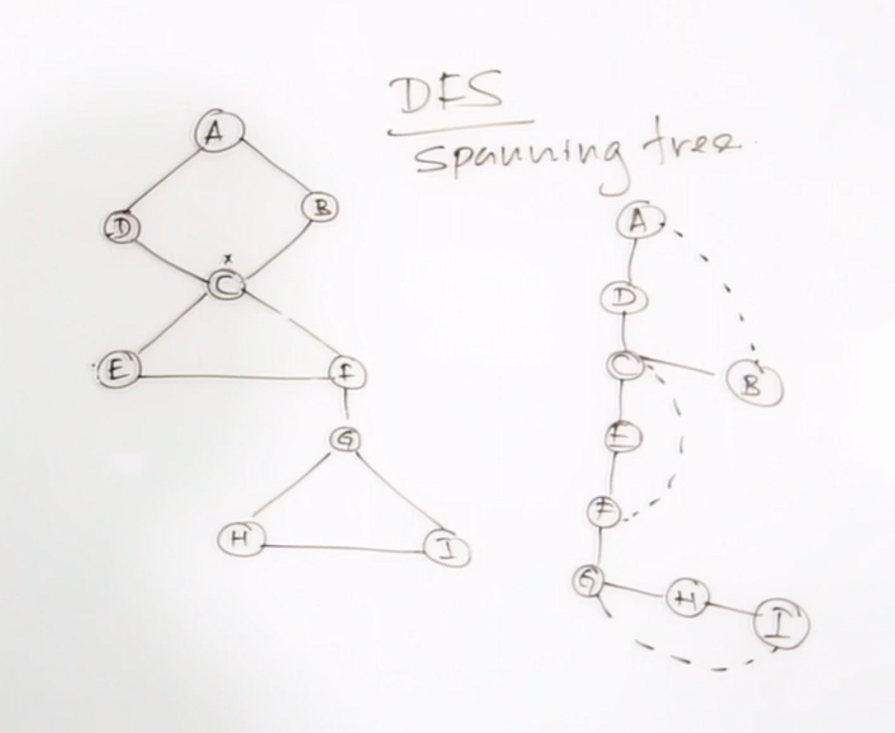 DFS
Spanning tree.
A
D
B
x
C
E
F
G
H
I
A
D
C
B
E
F
G
H
I